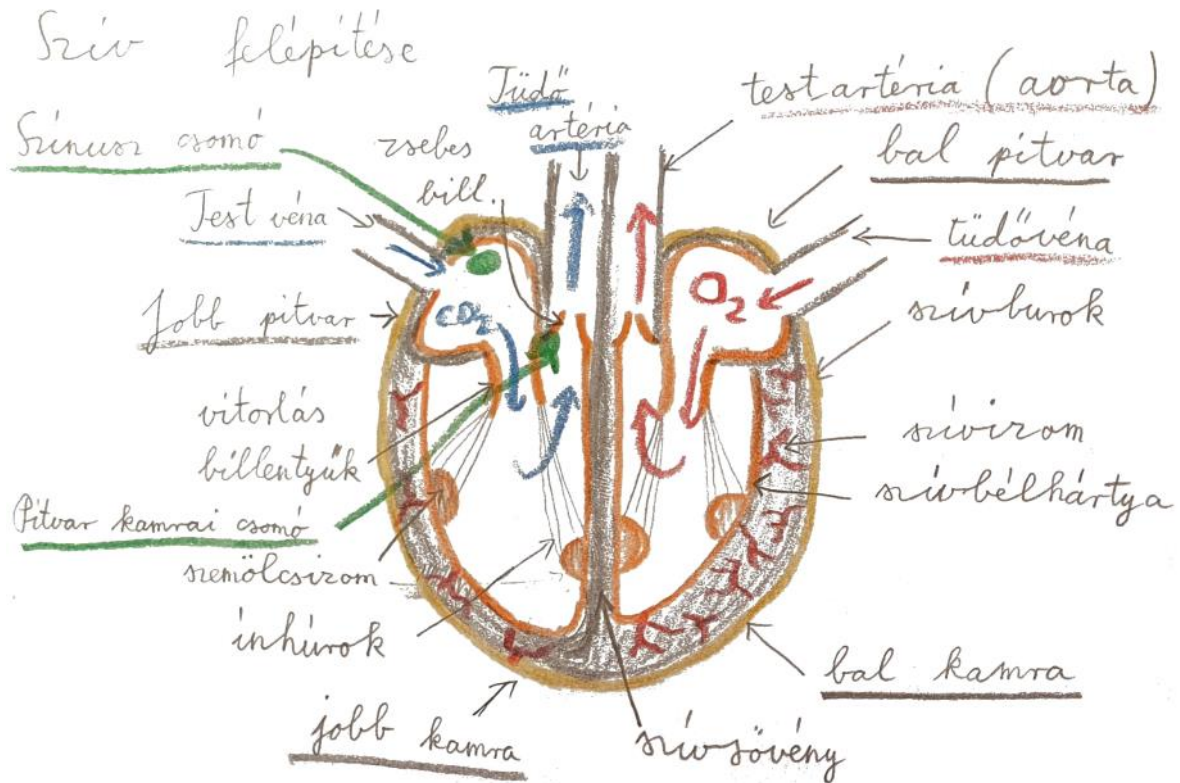 Szív felépítése
Tüdő
artéria
testartéria (aorta)
Szinusz csomó
zsebes
bill.
bal pitvar
Test véna
tüdővéna
Jobb pitvar
CO2
O2
szívburok
vitorlás
billentyűk
szívizom
szívbélhártya
Pitvar kamrai csomó
szemölcsizom
ínhúrok
bal kamra
jobb kamra
szívsövény